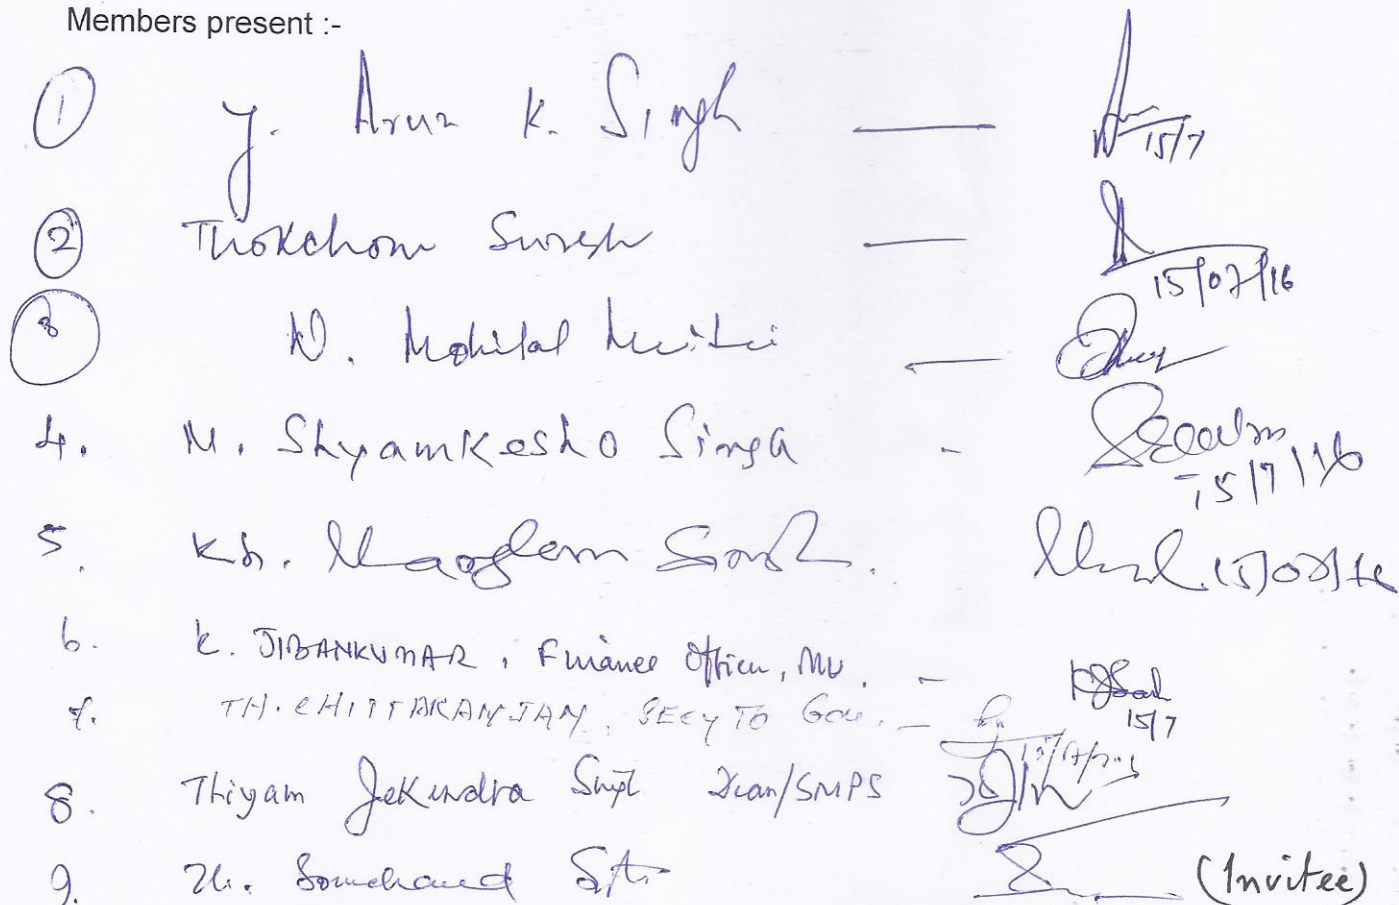 Members present :-
1 Y. Arun K. Singh — 15/7
2 Thokchom Suresh — 15/07/16
3 N. Mohilal Meitei —
4. M. Shyamkesho Singh - 15/7/16
5. Kh. Singh. 15/07/16
6. K. JIBANKUMAR, Finance Officer, MU. - 15/7
7. TH. CHITTARANJAN, SECY TO Gov. -
8. Thiyam Jekendra Singh Dean/SMPS
9. Th. Somchand (Invitee)